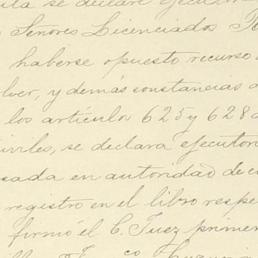 se declare
Señores Licenciados
haberse opuesto recurso
lver, y demás constancias
los artículo 625 y 628
iviles, se declara ejecutori
sada en autoridad de c
registro en el libro respe
firmó el C. Juez primer